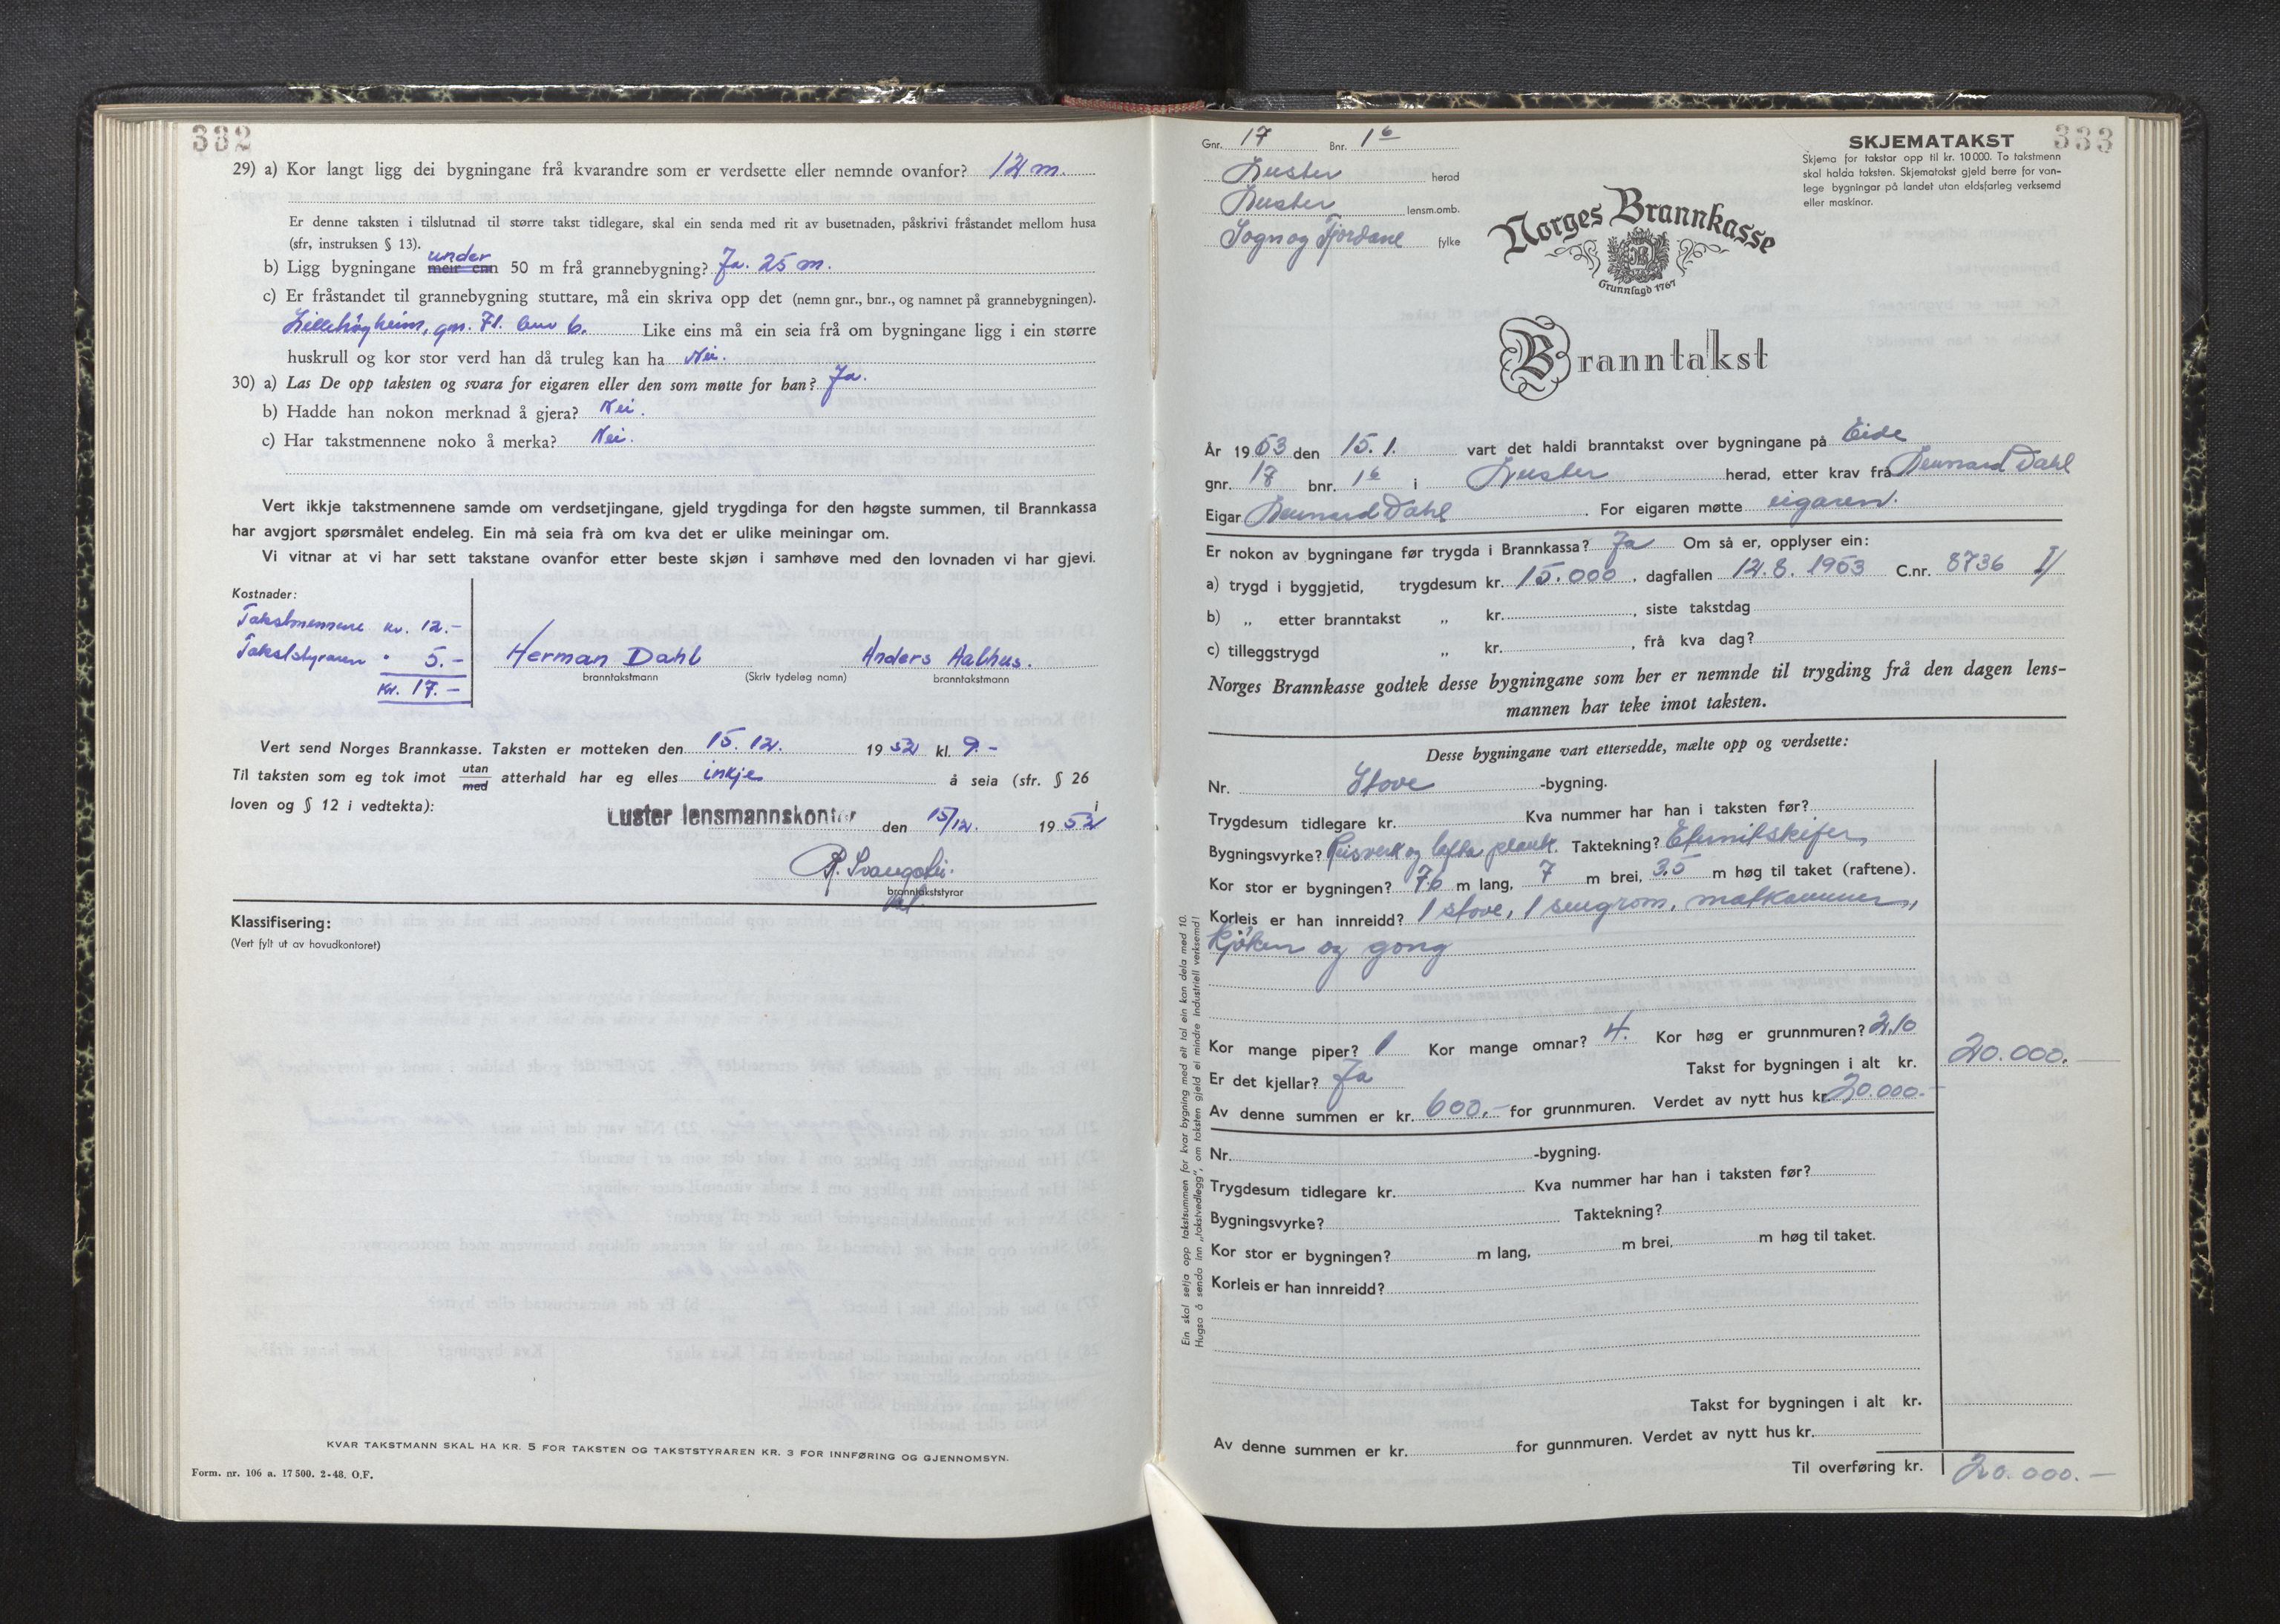 332
29) a) Kor langt ligg dei bygningane frå kvarandre som er verdsette eller nemnde ovanfor? 12 m.
Er denne taksten i tilslutnad til større takst tidlegare, skal ein senda med rit av busetnaden, påskrivi fråstandet mellom husa
(sfr, instruksen § 13).
under
b) Ligg bygningane meir enn 50 m frå grannebygning? Ja. 25 m.
c) Er fråstandet til grannebygning stuttare, må ein skriva opp det (nemn gnr., bnr., og namnet på grannebygningen).
Lillehøgheim, gnr. 71. bnr 6. Like eins må ein seia frå om bygningane ligg i ein større
huskrull og kor stor verd han då truleg kan ha Nei.
30) a) Las De opp taksten og svara for eigaren eller den som møtte for han? Ja.
b) Hadde han nokon merknad å gjera? Nei.
c) Har takstmennene noko å merka? Nei.
Vert ikkje takstmennene samde om verdsetjingane, gjeld trygdinga for den høgste summen, til Brannkassa
har avgjort spørsmålet endeleg. Ein må seia frå om kva det er ulike meiningar om.
Vi vitnar at vi har sett takstane ovanfor etter beste skjøn i samhøve med den lovnaden vi har gjevi.
Kostnader:
Takstmennene kr. 12.-
Takststyraren " 5.-
Kr. 17.-
Herman Dahl Anders Aalhus.
branntakstmann (Skriv tydeleg namn) branntakstmann
Vert send Norges Brannkasse. Taksten er motteken den 15. 12. 1952 kl. 9.-
Til taksten som eg tok imot utan/med atterhald har eg elles inkje å seia (sfr. § 26 i
loven og § 12 i vedtekta):
Luster lensmannskontor den 15/12. 1952
branntakststyrar
Klassifisering:
(Vert fylt ut av hovudkontoret)
KVAR TAKSTMANN SKAL HA KR. 5 FOR TAKSTEN OG TAKSTSTYRAREN KR. 3 FOR INNFØRING OG GJENNOMSYN.
Form. nr. 106 a. 17 500. 2-48. O.F.
333
Gnr. 17 Bnr. 16
Luster herad
Luster lensm.omb.
Sogn og Fjordane fylke
SKJEMATAKST
Skjema for takstar opp til kr. 10 000. To takstmenn
skal halda taksten. Skjematakst gjeld berre for van-
lege bygningar på landet utan eldsfarleg verksemd
eller maskinar.
Norges Brannkasse
Grunnlagd 1767
Branntakst
År 1953 den 15. 1. vart det haldi branntakst over bygningane på Eide
gnr. 17 bnr. 16 i Luster herad, etter krav frå Dahl
Eigar Dahl. For eigaren møtte eigaren.
Er nokon av bygningane før trygda i Brannkassa? Ja Om så er, opplyser ein:
a) trygd i byggjetid, trygdesum kr. 15.000, dagfallen 12. 8. 1953 C.nr. 8736
b) „ etter branntakst „ kr. , siste takstdag
c) tilleggstrygd „ kr. , frå kva dag?
Norges Brannkasse godtek desse bygningane som her er nemnde til trygding frå den dagen lens-
mannen har teke imot taksten.
Desse bygningane vart ettersedde, mælte opp og verdsette:
Nr. Stove -bygning.
Trygdesum tidlegare kr. Kva nummer har han i taksten før?
Bygningsvyrke? Reisverk og lafta plank. Taktekning? Eternitskifer,
Kor stor er bygningen? 7,5 m lang, 7 m brei, 3,5 m høg til taket (raftene).
Korleis er han innreidd? 1 stove, 1 sengrom, matkammer,
kjöken og gong
Kor mange piper? 1 Kor mange omnar? 4. Kor høg er grunnmuren? 2,10
Er det kjellar? Ja Takst for bygningen i alt kr. 20.000.-
Av denne summen er kr. 600.- for grunnmuren. Verdet av nytt hus kr. 20.000.-
Nr. -bygning.
Trygdesum tidlegare kr. Kva nummer har han i taksten før?
Bygningsvyrke? Taktekning?
Kor stor er bygningen? m lang, m brei, m høg til taket.
Korleis er han innreidd?
Takst for bygningen i alt kr.
Av denne summen er kr. for gunnmuren. Verdet av nytt hus kr.
Til overføring kr. 20.000.-
Ein skal setja opp takstsummen for kvar bygning med eit tal ein kan dela med 10.
Hugsa å senda inn „takstvedlegg“, om taksten gjeld ei mindre industriell verksemd!